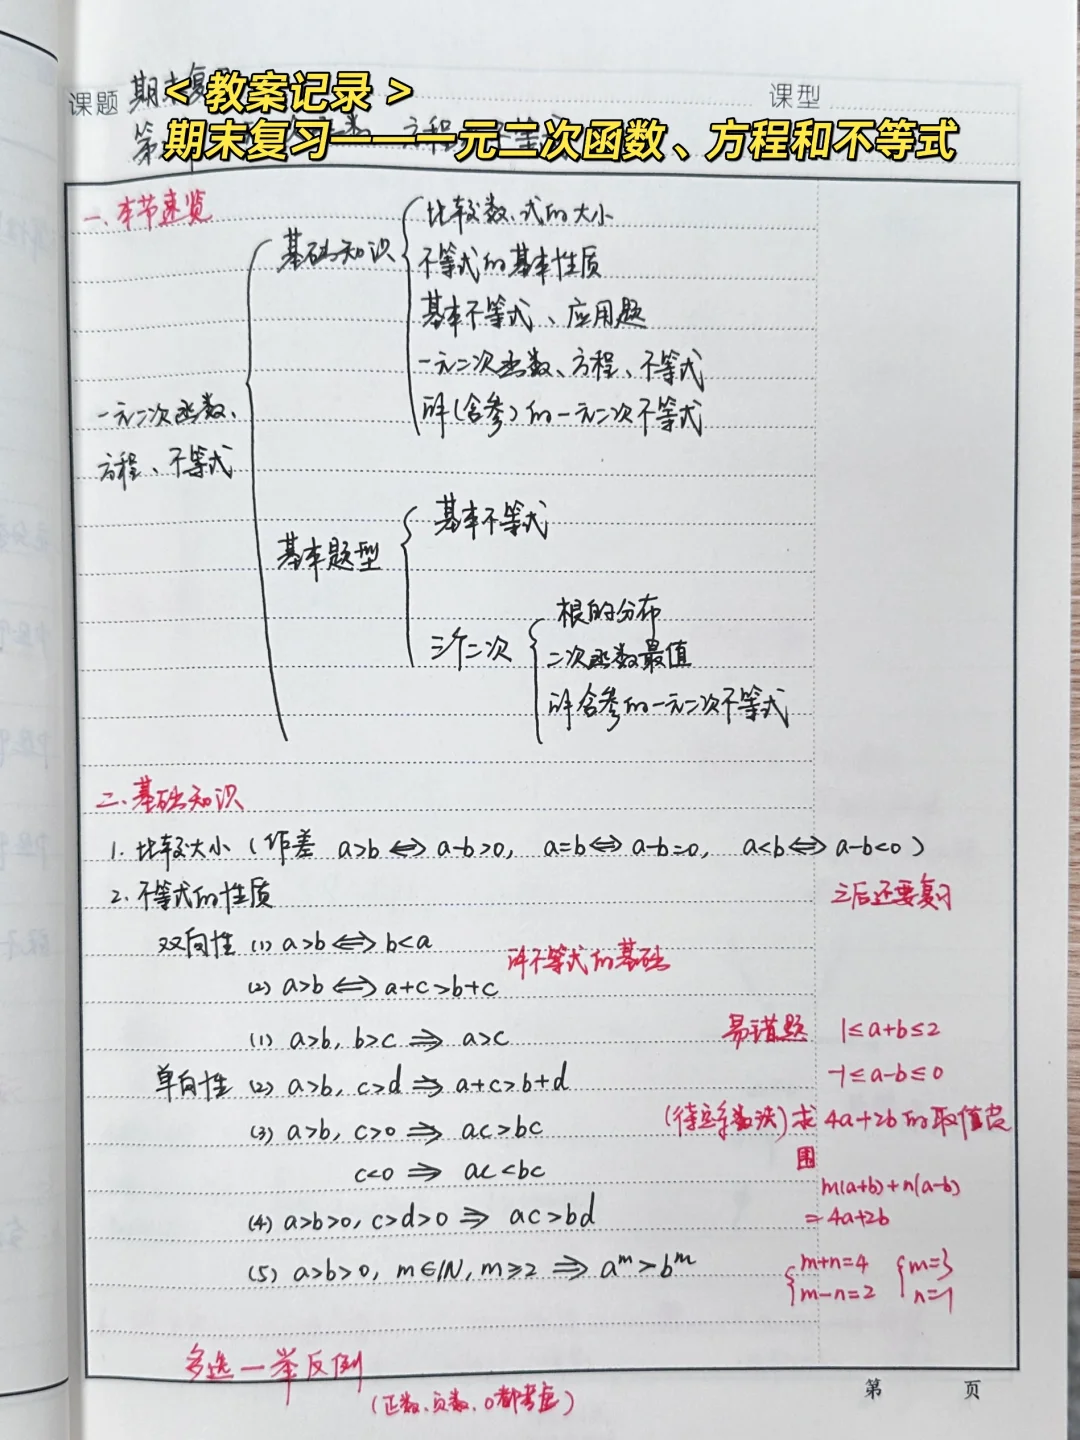 < 教案记录 >
期末复习———一元二次函数、方程和不等式
课题 期末复
课型
第
一、本节速览
基础知识
比较数、式的大小
不等式的基本性质
基本不等式、应用题
一元二次函数、方程、不等式
解(含参)的一元二次不等式
一元二次函数、
方程、不等式
基本题型
基本不等式
三个二次
根的分布
二次函数最值
解含参的一元二次不等式
二、基础知识
1. 比较大小(作差 a>b⇔a-b>0, a=b⇔a-b=0, a<b⇔a-b<0)
2. 不等式的性质
之后还要复习
双向性 (1) a>b⇔b<a
解不等式的基础
(2) a>b⇔a+c>b+c
(1) a>b, b>c⇒a>c
易错题 1≤a+b≤2
单向性 (2) a>b, c>d⇒a+c>b+d
-1≤a-b≤0
(3) a>b, c>0⇒ac>bc
(待定系数法)求 4a+2b的取值范
围
c<0⇒ac<bc
m(a+b)+n(a-b)
=4a+2b
(4) a>b>0, c>d>0⇒ac>bd
(5) a>b>0, m∈N, m≥2⇒aᵐ>bᵐ
m+n=4 m=3
m-n=2 n=1
多选—举反例
(正数、负数、0都考虑)
第 页